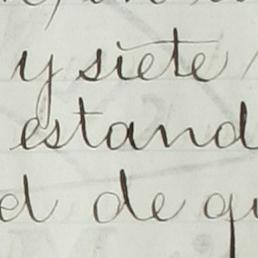 y siete
estand
d de qu